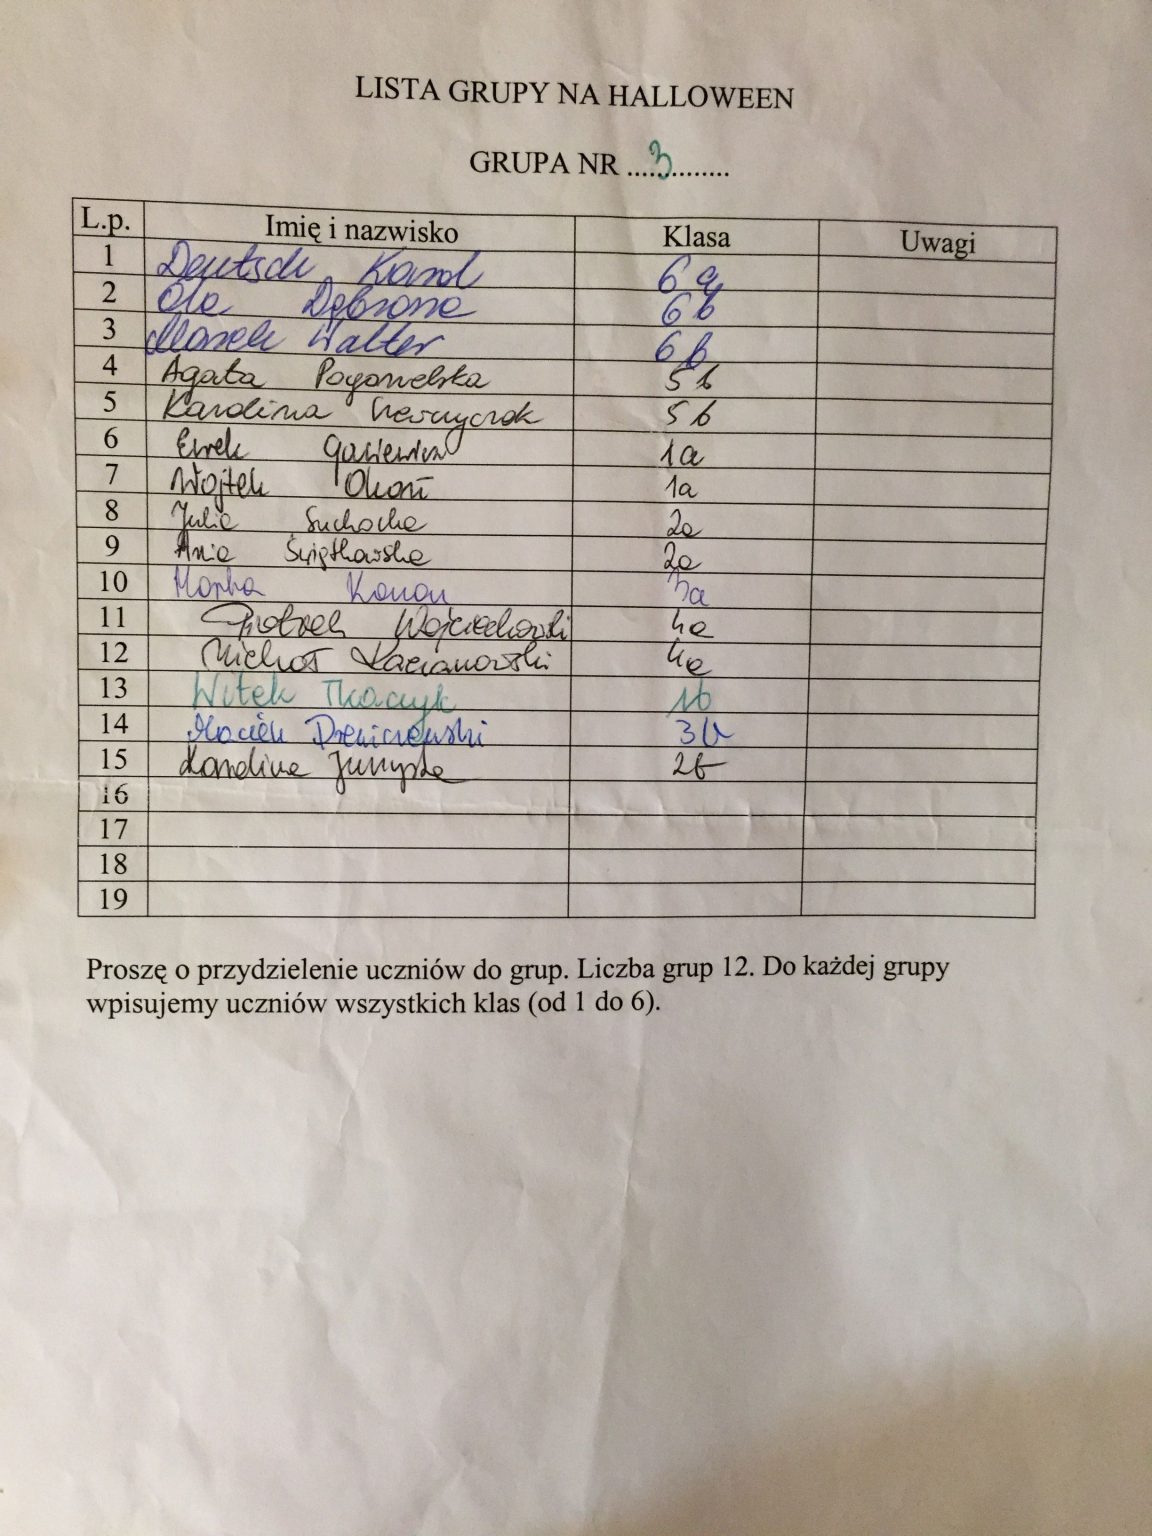 LISTA GRUPY NA HALLOWEEN
GRUPA NR ...3............
L.p. Imię i nazwisko Klasa Uwagi
1 Deutsch Karol 6a
2 Ola Dębrowa 6b
3 Marek Walter 6b
4 Agata Pogorzelska 5b
5 Karolina 5b
6 1a
7 Wojtek Okoń 1a
8 Julia Suchocka 2a
9 Ania Świątkowska 2a
10 3a
11 Wojciechowski 4a
12 Michał Kacianowski 4a
13 Witek Tkaczyk 1b
14 Maciek 3b
15 Karolina 2b
16
17
18
19
Proszę o przydzielenie uczniów do grup. Liczba grup 12. Do każdej grupy
wpisujemy uczniów wszystkich klas (od 1 do 6).